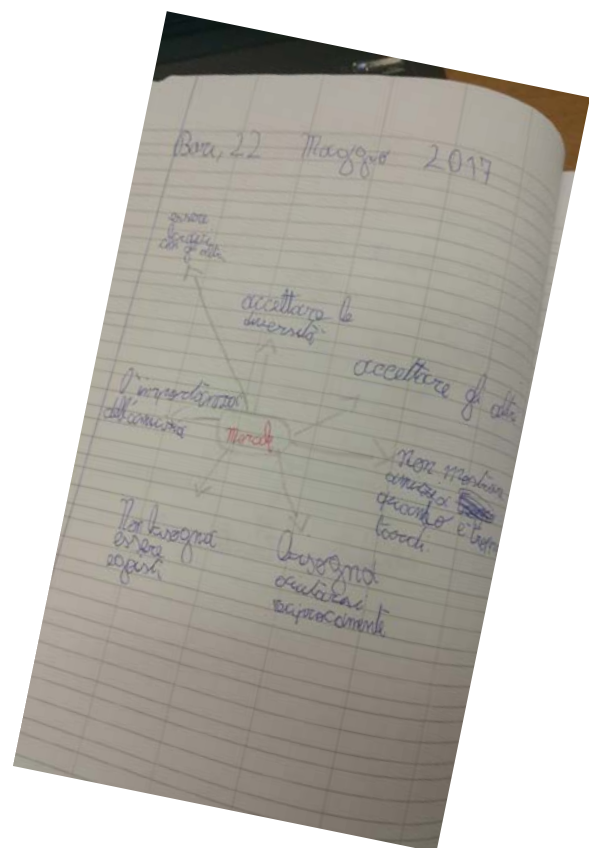 Bari, 22 Maggio 2017
essere
con gli altri
accettare le
diversità
accettare gli altri
l'importanza
dell'amicizia
Morale
non mostrare
amicizia
quando è troppo
tardi
Non bisogna
essere
egoisti
bisogna
aiutarsi
reciprocamente